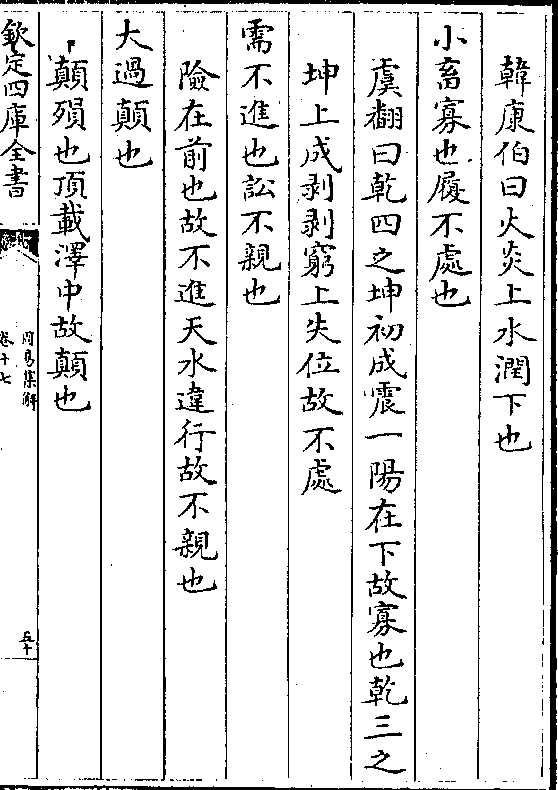 韓康伯曰火炎上水潤下也
小畜寡也履不處也
虞翻曰乾四之坤初成震一陽在下故寡也乾三之
坤上成剥剥窮上失位故不處
需不進也訟不親也
險在前也故不進天水違行故不親也
大過顛也
顛殞也頂載澤中故顛也
欽定四庫全書
周易集解
卷十七
五十